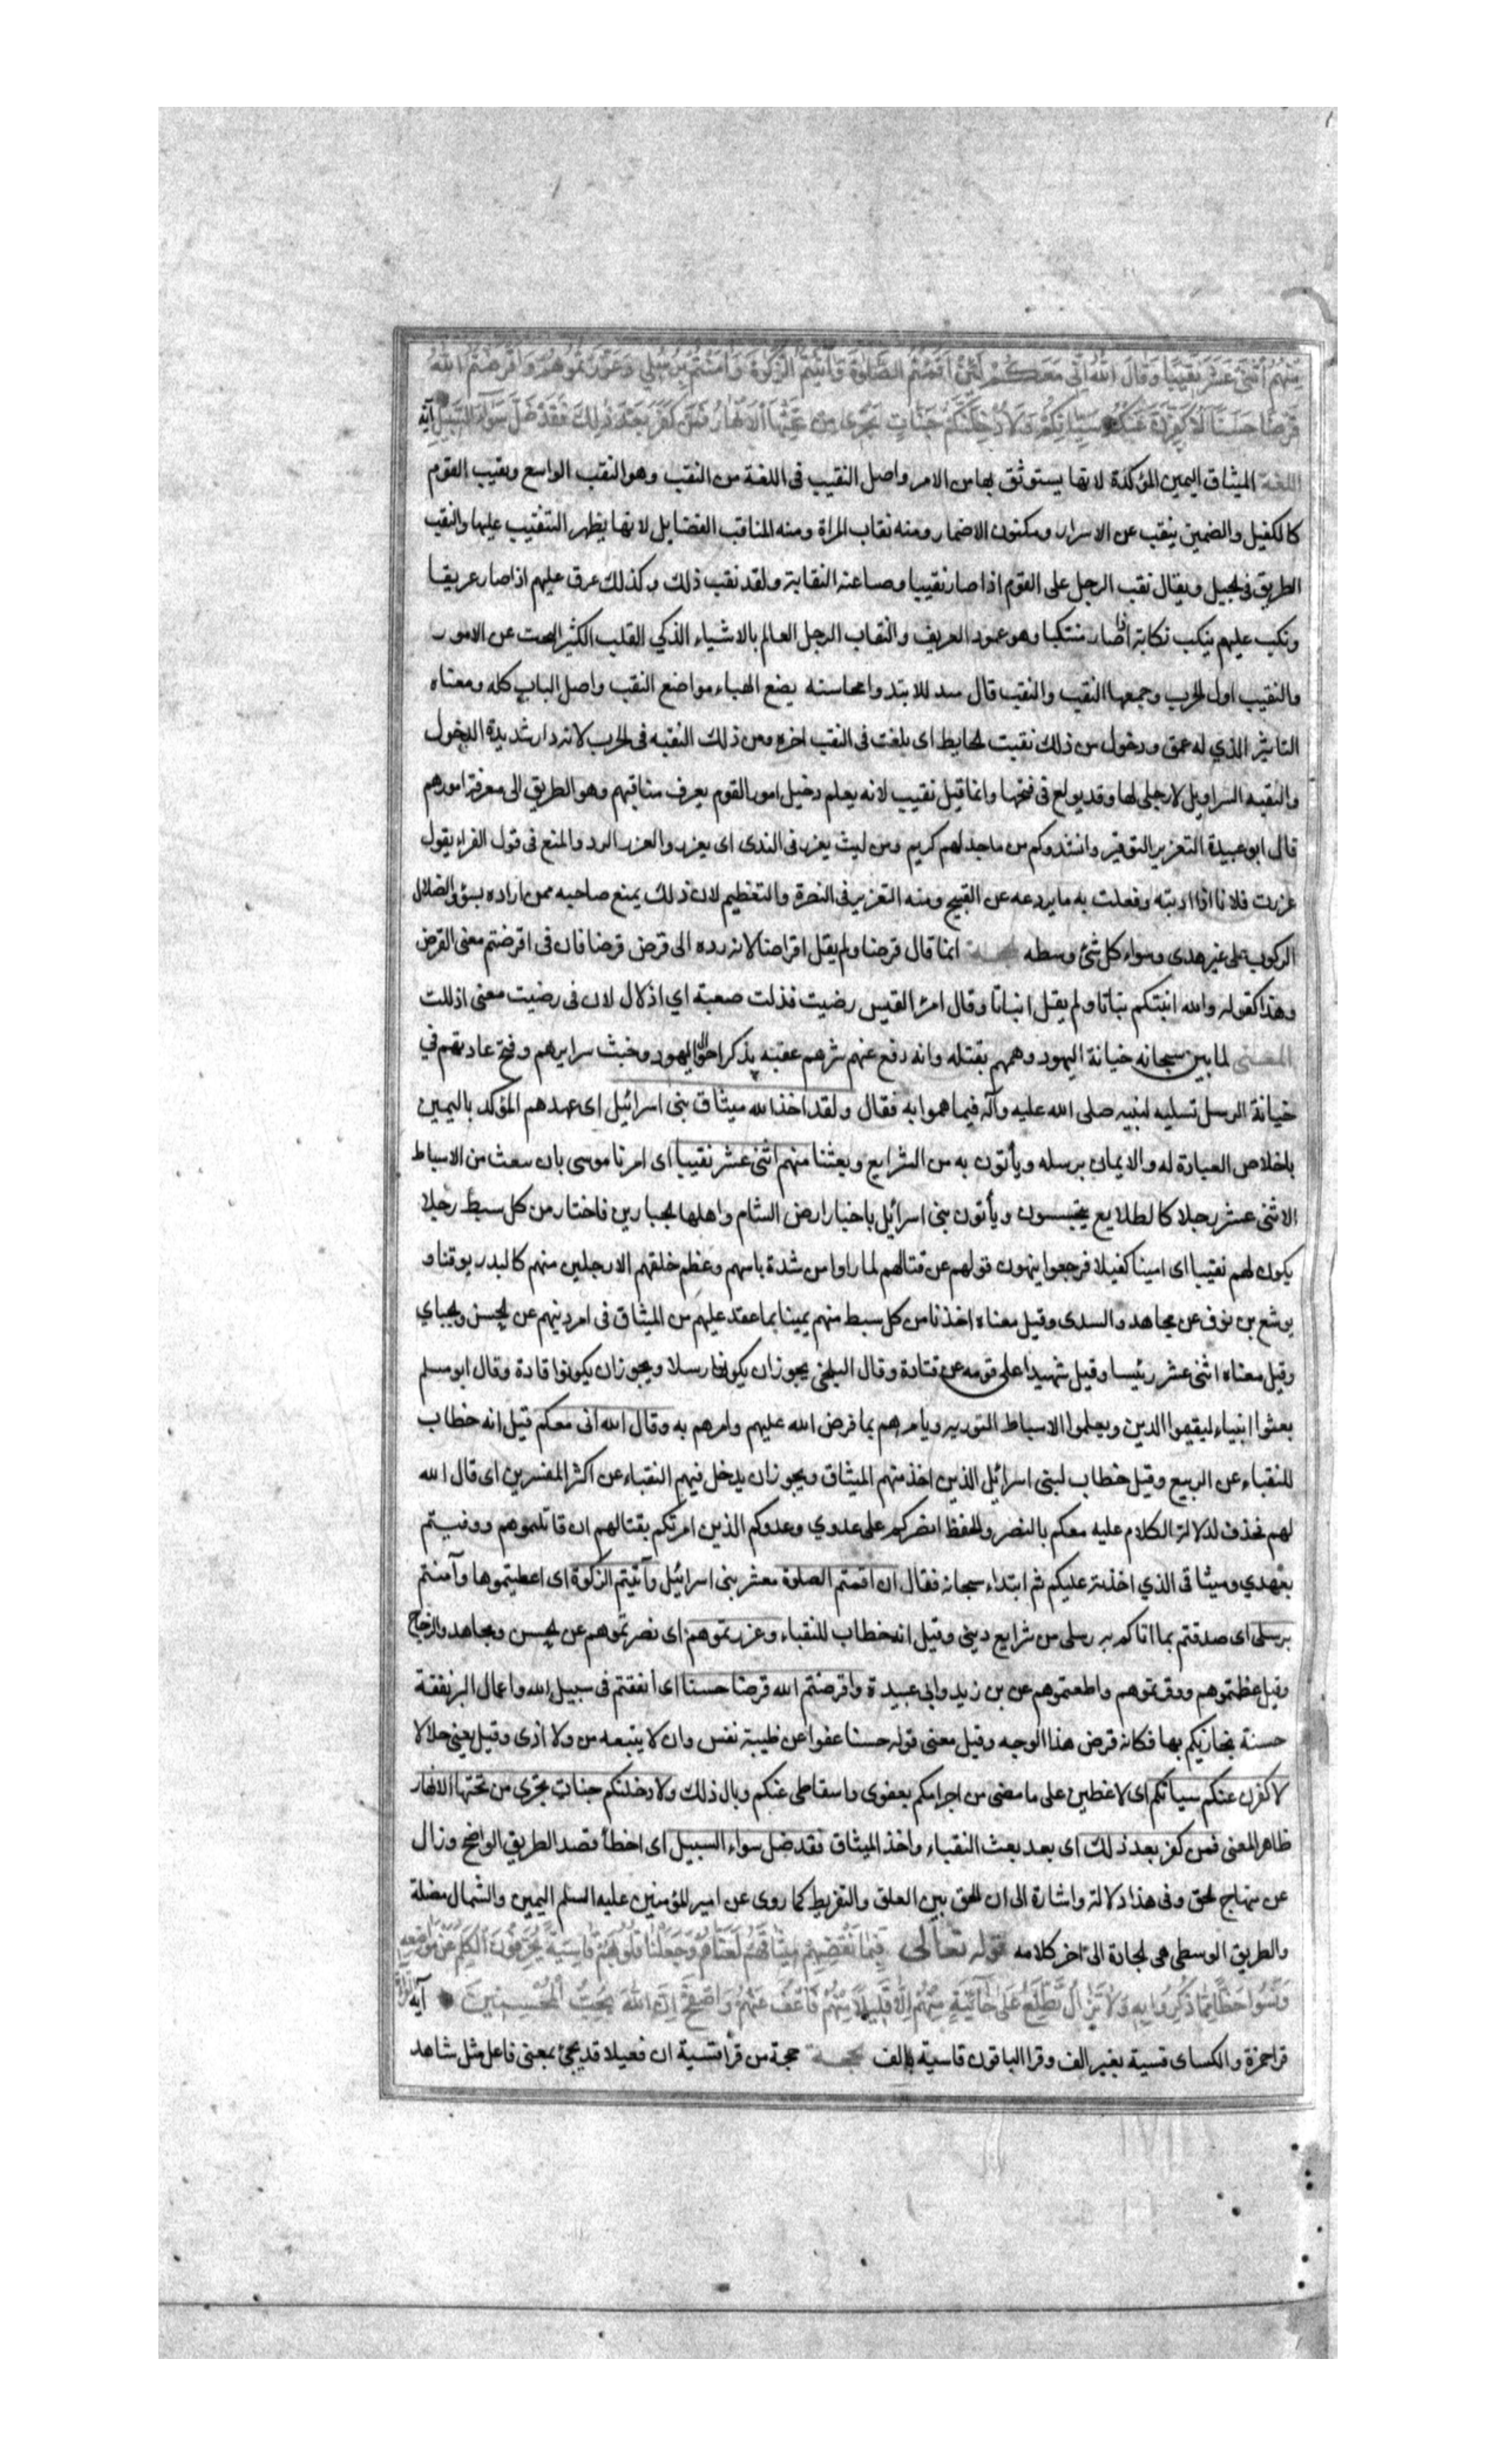 مِنْهُمُ اثْنَيْ عَشَرَ نَقِيبًا وَقَالَ اللهُ اِنّي مَعَكُمْ لَئِنْ اَقَمْتُمُ الصَّلوةَ وَآتَيْتُمُ الزَّكوةَ وَآمَنْتُمْ بِرُسُلي وَعَزَّرْتُمُوهُمْ وَاَقْرَضْتُمُ اللهَ
قَرْضًا حَسَنًا لَاُكَفِّرَنَّ عَنْكُمْ سَيِّاتِكُمْ وَلَاُدْخِلَنَّكُمْ جَنَّاتٍ تَجْري مِنْ تَحْتِهَا الْاَنْهَارُ فَمَنْ كَفَرَ بَعْدَ ذلِكَ فَقَدْ ضَلَّ سَوَآءَ السَّبيلِ آية
اللغة الميثاق اليمين المؤكدة لانها يستوثق بها من الامر واصل النقيب فى اللغة من النقب وهو النقب الواسع ونقيب القوم
كالكفيل والضمين ينقب عن الاسرار ومكنون الاضمار ومنه نقاب المراة ومنه المناقب الفضايل لانها يظهر التنقيب عليها والنقب
الطريق فى الجبل ويقال نقب الرجل على القوم اذا صار نقيبا وصناعته النقابة ولقد نقب ذلك وكذلك عرف عليهم اذا صار عريفا
ونكب عليهم ينكب نكابة اذا صار منكبا وهو عمود العريف والنقاب الرجل العالم بالاشياء الذكي القلب الكثير البحث عن الامور
والنقيب اول الجرب وجمعها النقب والنقب قال متبذلا تبدو محاسنه يضع الهناء مواضع النقب واصل الباب كله ومعناه
التاثير الذي له عمق ودخول من ذلك نقبت الحايط اى بلغت فى النقب اخره ومن ذلك النقبه فى الجرب لانه داء شديدة الدخول
والنقبه السراويل لا رجلى لها وقد يولع فى فتحها وانما قيل نقيب لانه يعلم دخيل امور القوم يعرف مناقبهم وهو الطريق الى معرفة امورهم
قال ابو عبيدة التعزير التوقير وانشد وكم من ماجد لهم كريم ومن ليث يعزر فى الندى اى يعزر والعزر الرد والمنع فى قول الفراء يقول
عزرت فلانا اذا ادبته وفعلت به ما يردعه عن القبيح ومنه التعزير فى النصرة والتعظيم لان ذلك يمنع صاحبه ممن اراده بسوء والضلال
الركوب على غير هدى وسواء كل شئ وسطه انما قال قرضا ولم يقل اقراضا لانه رده الى قرض قرضا فان فى اقرضتم معنى القرض
وهذا كقوله والله انبتكم نباتا ولم يقل انباتا وقال امرؤ القيس رضيت فذلت صعبة اي اذلال لان فى رضيت معنى اذللت
المعنى لما بين سبحانه خيانة اليهود وهمهم بقتله وانه دفع عنهم شرهم عقبه بذكر احوال اليهود وخبث سرايرهم وقبح عادتهم في
خيانة الرسل تسلية لنبيه صلى الله عليه وآله فيما هموا به فقال ولقد اخذ الله ميثاق بنى اسرائيل اى عهدهم المؤكد باليمين
باخلاص العبادة له والايمان برسله ويأتون به من الشرايع وبعثنا منهم اثنى عشر نقيبا اى امرنا موسى بان سعث من الاسباط
الاثنى عشر رجلا كالطلايع يتجسسون ويأتون بنى اسرائيل باخبار ارض الشام واهلها الجبارين فاختار من كل سبط رجلا
يكون لهم نقيبا اى امينا كفيلا فرجعوا ينهون قولهم عن قتالهم لما راوا من شدة باسهم وعظم خلقهم الا رجلين منهم كالب بن يوقنا و
يوشع بن نون عن مجاهد والسدى وقيل معناه اخذنا من كل سبط منهم يمينا بما عقد عليهم من الميثاق فى امر دينهم عن الحسن والجباي
وقيل معناه اثنى عشر رئيسا وقيل شهيدا على قومه عن قتادة وقال البلخى يجوز ان يكونوا رسلا ويجوز ان يكونوا قادة وقال ابو مسلم
بعثوا انبياء ليقيموا الدين ويعلموا الاسباط التورية ويامرهم بما فرض الله عليهم وامرهم به وقال الله انى معكم قيل انه خطاب
للنقباء عن الربيع وقيل خطاب لبنى اسرائيل الذين اخذ منهم الميثاق ويجوز ان يدخل فيهم النقباء عن اكثر المفسرين اى قال الله
لهم فحذف لدلالة الكلام عليه معكم بالنصر والحفظ انصركم على عدوي وعدوكم الذين امرتكم بقتالهم ان قاتلتموهم ووفيتم
بعهدي وميثاقى الذي اخذته عليكم ثم ابتداء سبحانه فقال ان اقمتم الصلوة معشر بنى اسرائيل وآتيتم الزكوة اى اعطيتموها وآمنتم
برسلى اى صدقتم بما اتاكم به رسلى من شرايع دينى وقيل انه خطاب للنقباء وعزرتموهم اى نصرتموهم عن الحسن ومجاهد والزجاج
وقيل عظمتموهم ووقرتموهم واطعتموهم عن بن زيد وابى عبيدة واقرضتم الله قرضا حسنا اى انفقتم فى سبيل الله واعمال البر نفقة
حسنة يجازيكم بها فكانه قرض هذا الوجه وقيل معنى قوله حسنا عفوا عن طيبة نفس وان لا يتبعه من ولا اذى وقيل يعنى حلالا
لاكفرن عنكم سياتكم اى لاغطين على ما مضى من اجرامكم بعفوى واسقاطى عنكم وبال ذلك ولادخلنكم جنات تجرى من تحتها الانهار
ظاهر المعنى فمن كفر بعد ذلك اى بعد بعث النقباء واخذ الميثاق فقد ضل سواء السبيل اى اخطأ قصد الطريق الواضح وزال
عن منهاج الحق وفى هذا دلالة واشارة الى ان الحق بين الغلو والتفريط كما روى عن امير المؤمنين عليه السلم اليمين والشمال مضلة
والطريق الوسطى هى الجادة الى آخر كلامه قوله تعالى فَبِمَا نَقْضِهِمْ مِيثَاقَهُمْ لَعَنَّاهُمْ وَجَعَلْنَا قُلُوبَهُمْ قَاسِيَةً يُحَرِّفُونَ الْكَلِمَ عَنْ مَوَاضِعِهِ
وَنَسُوا حَظًّا مِمَّا ذُكِّرُوا بِهِ وَلَا تَزَالُ تَطَّلِعُ عَلَى خَآئِنَةٍ مِنْهُمْ اِلَّا قَلِيلًا مِنْهُمْ فَاعْفُ عَنْهُمْ وَاصْفَحْ اِنَّ اللهَ يُحِبُّ الْمُحْسِنِينَ آية
قرا حمزة والكساى قسية بغير الف وقرا الباقون قاسية بالف حجة من قرأ قسية ان فعيلا قد يجئ بمعنى فاعل مثل شاهد